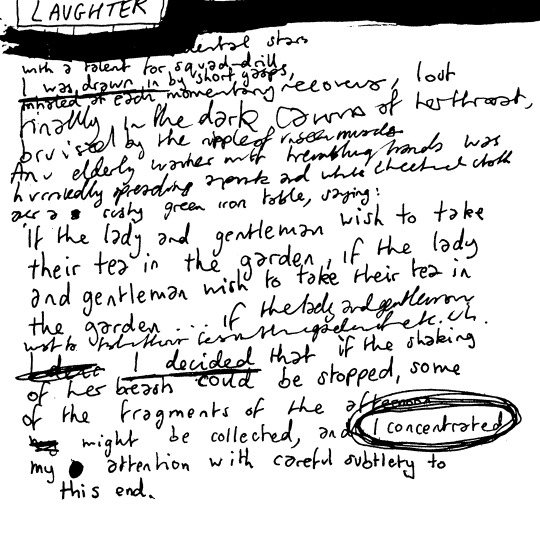 LAUGHTER
dental stars
with a talent for squad-drill
I was drawn in by short gasps,
inhaled at each momentary recovery, lost
finally in the dark caverns of her throat,
bruised by the ripple of unseen muscles
An elderly waiter with trembling hands was
hurriedly spreading a pink and white checked cloth
over a rusty green iron table, saying:
If the lady and gentleman wish to take
their tea in the garden, if the lady
and gentleman wish to take their tea in
the garden... if the lady and gentleman
wish to take their tea in the garden etc. etc.
I decided that if the shaking
of her breasts could be stopped, some
of the fragments of the afternoon
might be collected, and I concentrated
my attention with careful subtlety to
this end.